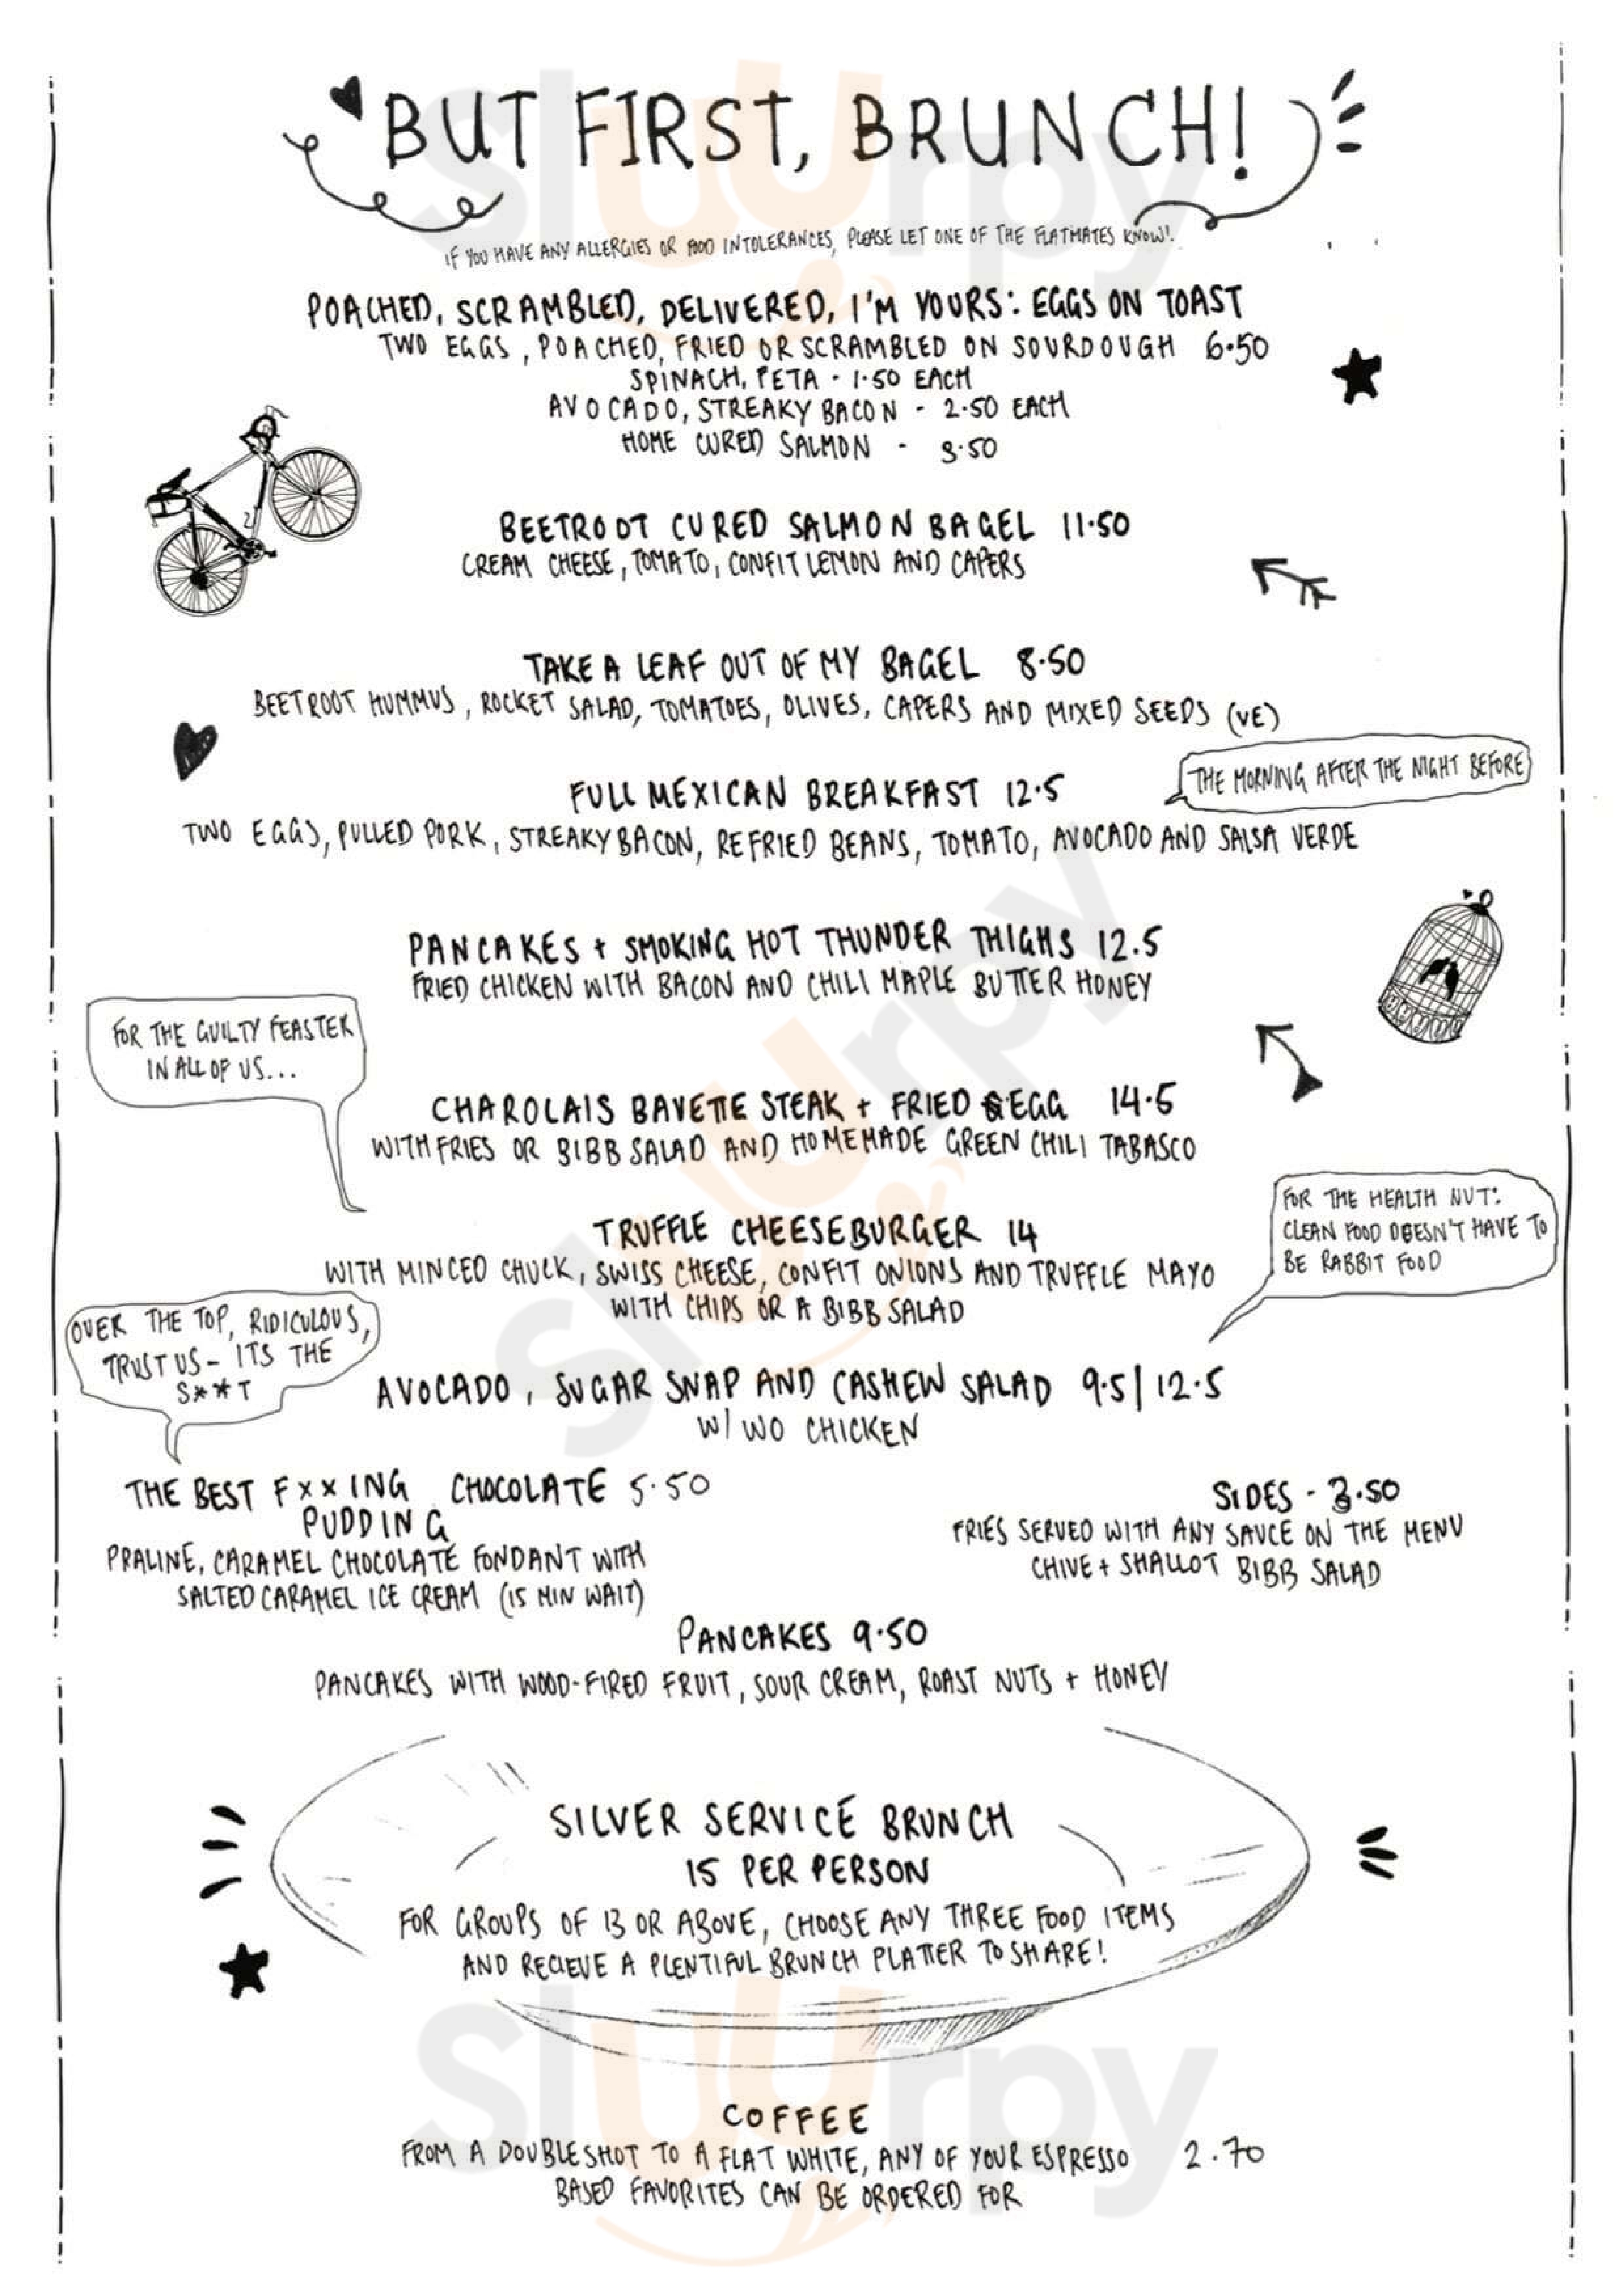 BUT FIRST, BRUNCH!
IF YOU HAVE ANY ALLERGIES OR FOOD INTOLERANCES, PLEASE LET ONE OF THE FLATMATES KNOW!
POACHED, SCRAMBLED, DELIVERED, I'M YOURS: EGGS ON TOAST
TWO EGGS, POACHED, FRIED OR SCRAMBLED ON SOURDOUGH 6.50
SPINACH, FETA - 1.50 EACH
AVOCADO, STREAKY BACON - 2.50 EACH
HOME CURED SALMON - 3.50
BEETROOT CURED SALMON BAGEL 11.50
CREAM CHEESE, TOMATO, CONFIT LEMON AND CAPERS
TAKE A LEAF OUT OF MY BAGEL 8.50
BEETROOT HUMMUS, ROCKET SALAD, TOMATOES, OLIVES, CAPERS AND MIXED SEEDS (VE)
THE MORNING AFTER THE NIGHT BEFORE
FULL MEXICAN BREAKFAST 12.5
TWO EGGS, PULLED PORK, STREAKY BACON, REFRIED BEANS, TOMATO, AVOCADO AND SALSA VERDE
PANCAKES + SMOKING HOT THUNDER THIGHS 12.5
FRIED CHICKEN WITH BACON AND CHILI MAPLE BUTTER HONEY
FOR THE GUILTY FEASTER
IN ALL OF US...
CHAROLAIS BAVETTE STEAK + FRIED EGG 14.5
WITH FRIES OR BIBB SALAD AND HOMEMADE GREEN CHILI TABASCO
FOR THE HEALTH NUT:
CLEAN FOOD DOESN'T HAVE TO
BE RABBIT FOOD
TRUFFLE CHEESEBURGER 14
WITH MINCED CHUCK, SWISS CHEESE, CONFIT ONIONS AND TRUFFLE MAYO
WITH CHIPS OR A BIBB SALAD
OVER THE TOP, RIDICULOUS,
TRUST US - ITS THE
S**T
AVOCADO, SUGAR SNAP AND CASHEW SALAD 9.5 | 12.5
W/ WO CHICKEN
THE BEST FXXING CHOCOLATE 5.50
PUDDING
PRALINE, CARAMEL CHOCOLATE FONDANT WITH
SALTED CARAMEL ICE CREAM (15 MIN WAIT)
SIDES - 3.50
FRIES SERVED WITH ANY SAUCE ON THE MENU
CHIVE + SHALLOT BIBB SALAD
PANCAKES 9.50
PANCAKES WITH WOOD-FIRED FRUIT, SOUR CREAM, ROAST NUTS + HONEY
SILVER SERVICE BRUNCH
15 PER PERSON
FOR GROUPS OF 13 OR ABOVE, CHOOSE ANY THREE FOOD ITEMS
AND RECIEVE A PLENTIFUL BRUNCH PLATTER TO SHARE!
COFFEE
FROM A DOUBLE SHOT TO A FLAT WHITE, ANY OF YOUR ESPRESSO 2.70
BASED FAVORITES CAN BE ORDERED FOR
Sluurpy
Sluurpy
Sluurpy